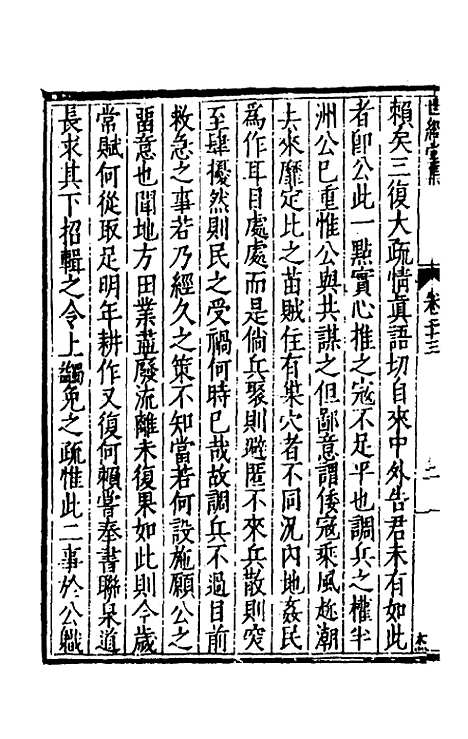 世經堂集
卷二十三
二
賴矣三復大疏情眞語切自來中外告君未有如此
者卽公此一點實心推之冦不足平也調兵之權半
洲公已重惟公與共謀之但鄙意謂倭冦乘風趂潮
去來靡定比之苗賊住有巢穴者不同況內地姦民
爲作耳目處處而是倘兵聚則避匿不來兵散則突
至肆擾然則民之受禍何時已哉故調兵不過目前
救急之事若乃經久之策不知當若何設施願公之
畱意也聞地方田業蓝廢流離未復果如此則今歲
常賦何從取足明年耕作又復何賴嘗奉書聯泉道
長求其下招輯之令上蠲免之疏惟此二事於公職